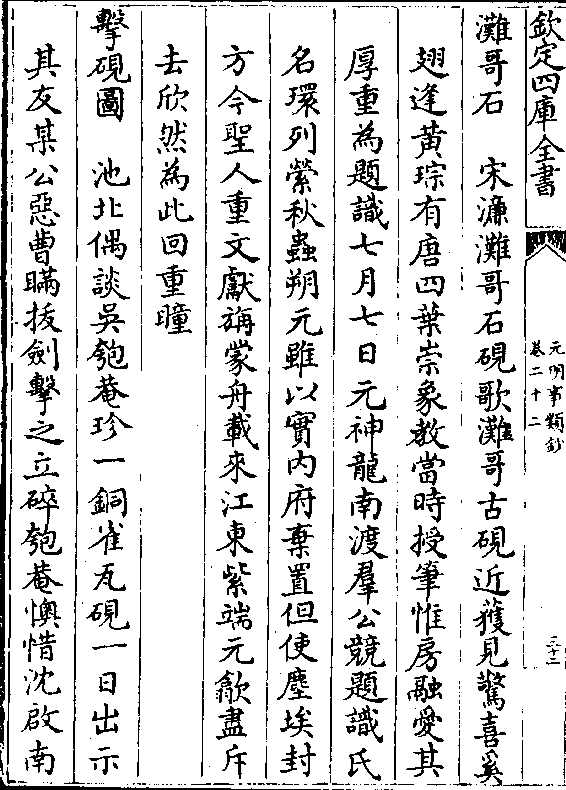 欽定四庫全書
元明事類鈔
卷二十二
三十三
灘哥石　宋濂灘哥石硯歌灘哥古硯近獲見驚喜奚
翅逢黃琮有唐四葉崇象教當時授筆惟房融愛其
厚重為題識七月七日元神龍南渡羣公競題識氏
名環列縈秋蟲朔元雖以實内府棄置但使塵埃封
方今聖人重文獻旃蒙舟載來江東紫端元歙盡斥
去欣然為此回重瞳
擊硯圖　池北偶談吳匏菴珍一銅雀瓦硯一日出示
其友某公惡曹瞞拔劍擊之立碎匏菴懊惜沈啟南